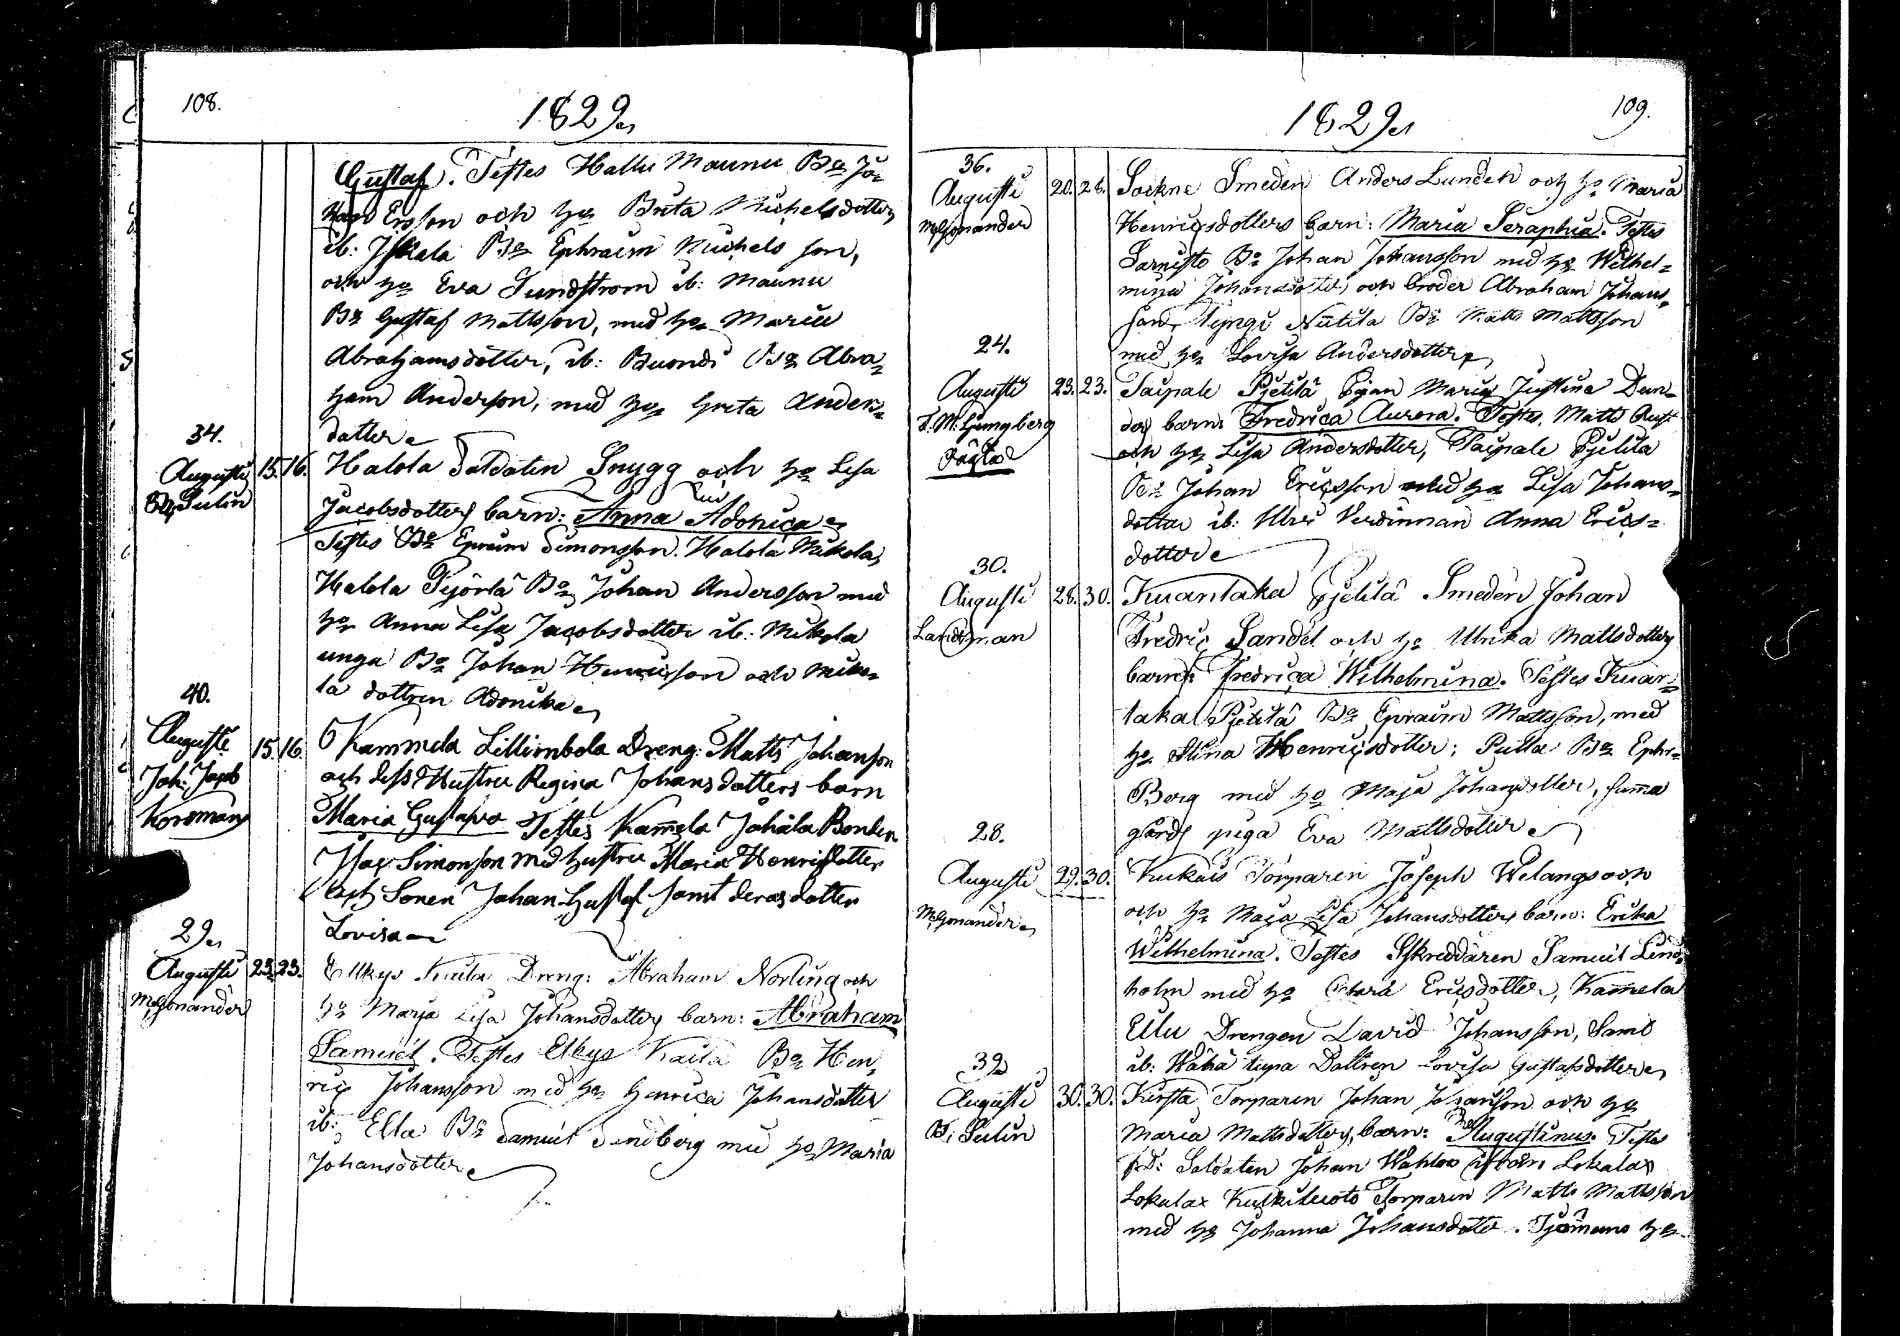 108.
1829
Gustaf. Testes Hallu Maunu Bn Jo-
han Ersson och hn Brita Michelsdotter,
ib: Iskala Bn Ephraim Michels son,
och hn Eva Sundstrom ib: Maunu
Bn Gustaf Mattsson, med hn Maria
Abrahamsdotter, ib: Buondi Bn Abra-
ham Anderson, med hn Greta Anders-
dotter
34.
Augusti 15. 16.
Sulin
Halola Soldaten Snygg och hn Lisa
Jacobsdotters barn: Anna Adonica
Testes Bn Epraim Simonsson. Halola Mikola,
Halola Pyörlä Bn Johan Andersson med
hn Anna Lisa Jacobsdotter ib: Mikola
unga Bn Johan Henricsson och Miko-
la dottren Adonika
40.
Augusti 15. 16.
Joh: Jacob
Korsman
Kammela Lillimbola Dreng: Matts Johanson
och dess Hustru Regina Johansdotters barn
Maria Gustava Testes Kamela Johala Bonden
Isac Simonson med hustru Maria Henricsdotter
och Sonen Johan Gustaf samt deras dotter
Lovisa
29
Augusti 23. 23.
Monander
Elkys Kaila Dreng: Abraham Norling och
hn Marja Lisa Johansdotters barn: Abraham
Samuel. Testes Elkys Kaila Bn Hen-
ric Johansson med hn Henrica Johansdotter
ib: Ella Bn Samuel Sendberg med hn Maria
Johansdotter
109.
1829
36.
Augusti 20. 24.
Monander
Sockne Smeden Anders Lunden och hn Maria
Henricsdotters barn: Maria Seraphia. Testes
Sarnisto Bn Johan Johansson med hn Wilhel-
mina Johansdotter, och broder Abraham Johans-
son, Niitila Bn Matts Mattsson
med hn Lovisa Andersdotter
24.
Augusti 23. 23.
Ljungberg
Taipale Pietilä Pigan Maria Justina Dan-
ders barn: Fredrica Aurora. Testes, Matts
och hn Lisa Andersdotter, Taipale Pietilä
Bn Johan Ericsson med hn Lisa Johans-
dotter ib: Värdinnan Anna Erics-
dotter
30.
Augusti 28. 30.
Landtman
Pietilä Smeden Johan
Fredric Sandel och hn Ulrika Mattsdotters
barn: Fredrica Wilhelmina. Testes
Pietilä Bn Epraim Mattsson, med
hn Stina Henricsdotter; Bn Ephr-
Berg med hn Maja Johansdotter, samma
gårds piga Eva Mattsdotter
28.
Augusti 29. 30.
Monander
Kukais Torparen Joseph Welangs och
och hn Maja Lisa Johansdotters barn: Erika
Wilhelmina. Testes Skreddaren Samuel Lind-
holm med hn Ericsdotter, Kamela
Ellu Drengen David Johansson, Samt
ib: Dottren Lovisa Gustafsdotter
39
Augusti 30. 30.
Sulin
Kirsta Torparen Johan Johansson och hn
Maria Mattsdotters, barn: Augustinus. Testes
fd: Soldaten Johan från Lokalax
Lokalax Torparen Matts Mattsson
med hn Johanna Johansdotter.